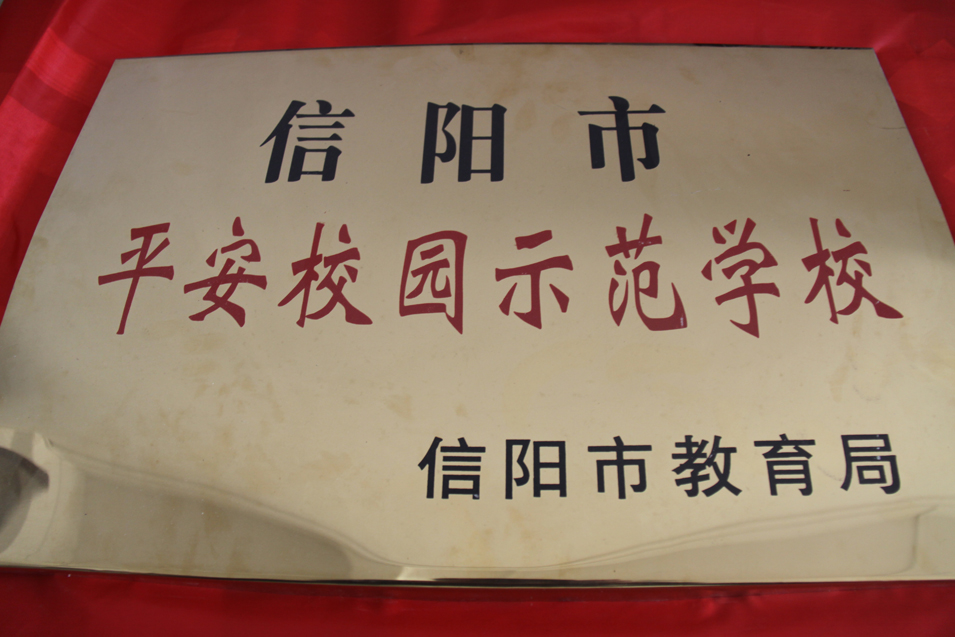 信阳市
平安校园示范学校
信阳市教育局